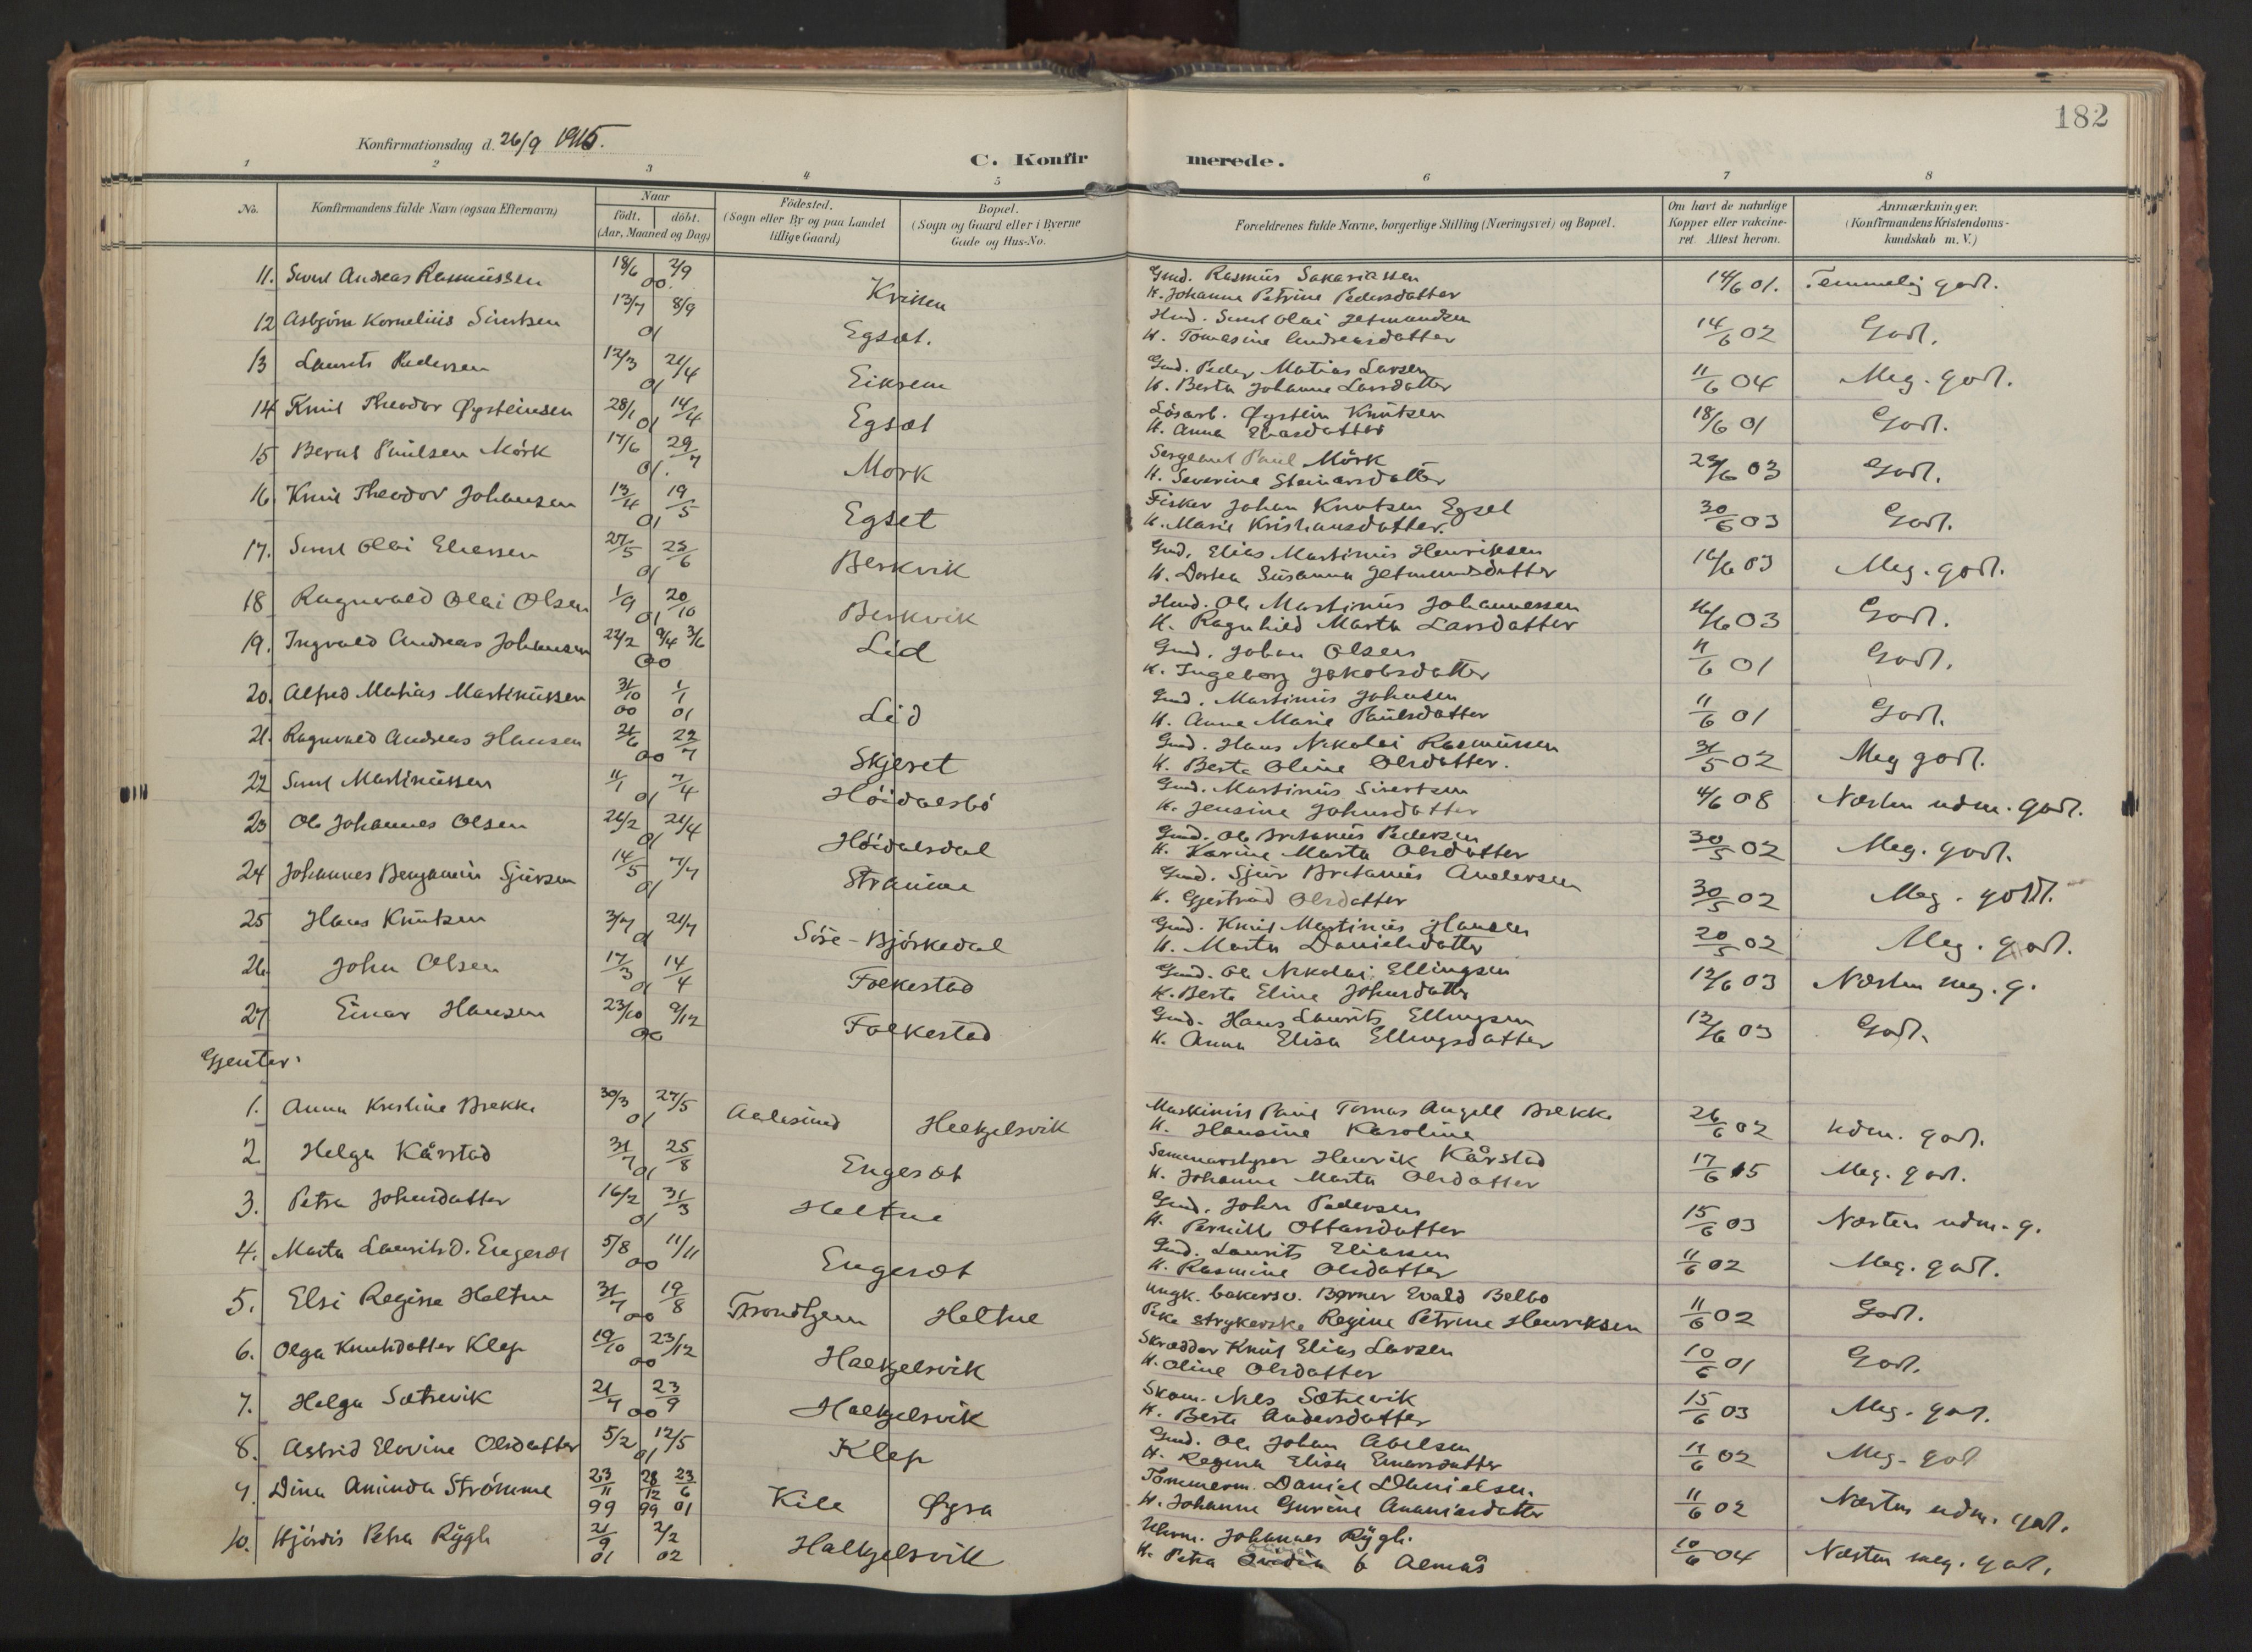 182
Konfirmationsdag d. 26/9 1915.
C. Konfirmerede.
1 2 3 4 5 6 7 8
No. Konfirmandens fulde Navn (ogsaa Efternavn) Naar födt. döbt. (Aar, Maaned og Dag) Födested. (Sogn eller By og paa Landet tillige Gaard) Bopæl. (Sogn og Gaard eller i Byerne Gade og Hus-No. Forældrenes fulde Navne, borgerlige Stilling (Næringsvei) og Bopæl. Om havt de naturlige Kopper eller vakcineret. Attest herom. Anmærkninger. (Konfirmandens Kristendomskundskab m. V.)
11. Sivert Andreas Rasmussen 18/6 2/9 00. Gmd. Rasmus Sakariassen 14/6 01. Temmelig godt.
K. Johanne Petrine Pedersdatter
12 Asbjörn Kornelius Sivertsen 13/7 8/9 01 Egset. Hmd. Sivert Olai Jetmundsen 14/6 02 Godt.
K. Tomasine Andreasdatter
13 Laurits Pedersen 12/3 21/4 01 Eiksem Gmd. Peder Matias Larsen 11/6 04 Meg. godt.
K. Berta Johanne Larsdatter
14 Knut Theodor Øysteinsen 28/1 14/4 01 Egset Lösarb. Øystein Knutsen 18/6 01 Godt.
K. Anna Eliasdatter
15 Bernt Paulsen Mörk 17/6 29/7 01. Mörk Sergeant Paul Mörk 23/6 03 Godt.
K. Severine Steinarsdatter
16. Knut Theodor Johansen 13/4 19/5 01 Egset Fisker Johan Knutsen Egset 30/6 03 Godt.
K. Marie Kristiansdatter.
17. Sivert Olai Eliassen 27/5 23/6 01 Berkvik Gmd. Elias Martinus Henriksen 16/6 03 Meg. godt.
K. Dortea Susanna Jetmundsdatter
18 Ragnvald Olai Olsen 1/9 20/10 01 Berkvik Hmd. Ole Martinus Johannessen 16/6 03 Godt.
K. Ragnhild Marta Larsdatter
19. Ingvald Andreas Johansen 22/2 9/4 3/6 00 Lid Gmd. Johan Olsen 11/6 01 Godt.
K. Ingeborg Jakobsdatter
20. Alfred Matias Martinussen 31/10 00 1/1 01 Lid Gmd. Martinus Johnsen 11/6 01 Godt.
K. Anne Marie Paulsdatter
21. Ragnvald Andreas Hansen 21/6 22/7 00 Skjeret Gmd. Hans Nikolai Rasmussen 31/5 02 Meg godt.
K. Berte Oline Olsdatter.
22 Sivert Martinussen 11/1 7/4 01 Höidalsbö Gmd. Martinus Sivertsen 4/6 08 Næsten udm. godt.
K. Jensine Johnsdatter
23 Ole Johannes Olsen 26/2 21/4 01 Höidalsdal Gmd. Ole Britanus Pedersen 30/5 02 Meg. godt.
K. Karine Marta Olsdatter
24 Johannes Benjamin Sjursen 14/5 7/7 01 Straume Gmd. Sjur Britanus Andersen 30/5 02 Meg. godt.
K. Gjertrud Olsdatter
25 Hans Knutsen 3/7 21/7 01 Söre-Björkedal Gmd. Knut Martinus Hansen 20/5 02 Meg. godt.
K. Marta Danielsdatter
26. John Olsen 17/3 14/4 01 Folkestad Gmd. Ole Nikolai Ellingsen 12/6 03 Næsten meg. g.
K. Berte Eline Johnsdatter
27 Einar Hansen 23/10 9/12 00 Folkestad Gmd. Hans Laurits Ellingsen 12/6 03 Godt.
K. Anna Elisa Ellingsdatter
Gjenter:
1. Anna Kristine Brekke 30/3 27/5 01 Aalesund Helkjelsvik Maskinist Paul Tomas Angell Brekke 26/6 02 udm. godt.
K. Hansine Karoline
2. Helga Kårstad 31/7 25/8 01 Engeset Henrik Kårstad 17/6 15 Meg. godt.
K. Johanne Marta Olsdatter
3. Petra Johnsdatter 16/2 31/3 01 Heltne Gmd. John Pedersen 15/6 03 Næsten udm. g.
K. Pernille Ottarsdatter
4. Marta Lauritsd. Engeset 5/8 11/11 00 Engeset Gmd. Laurits Eliassen 11/6 02 Meg. godt.
K. Rasmine Olsdatter
5. Elsi Regine Heltne 31/7 19/8 00 Trondhjem Heltne Ungk. bakersv. Berner Evald Belbo 11/6 02 Godt.
Pike strykerske Regine Petrine Henriksen
6. Olga Knutsdatter Klep 19/10 23/12 00 Halkjelsvik Skrædder Knut Elias Larsen 10/6 01 Godt.
K. Oline Olsdatter
7. Helga Sætrevik 21/7 23/9 00 Halkjelsvik Skom. Nils Sætrevik 15/6 03 Meg. godt.
K. Berte Andersdatter
8. Astrid Elovine Olsdatter 5/2 12/5 01 Klep Gmd. Ole Johan Abelsen 11/6 02 Meg. god
K. Regina Elisa Einarsdatter
9. Dina Aminda Strömme 23/11 99 28/12 99 23/6 01 Kile Øyra Tömmerm. Daniel Danielsen. 11/6 02 Næsten udm. godt.
K. Johanne Gurine Ananiasdatter
10. Hjördis Petra Rÿgh 21/9 01 2/2 02 Halkjelsvik Uhrm. Johannes Rÿgh. 10/6 04 Næsten meg. godt.
K. Petra f. Almås